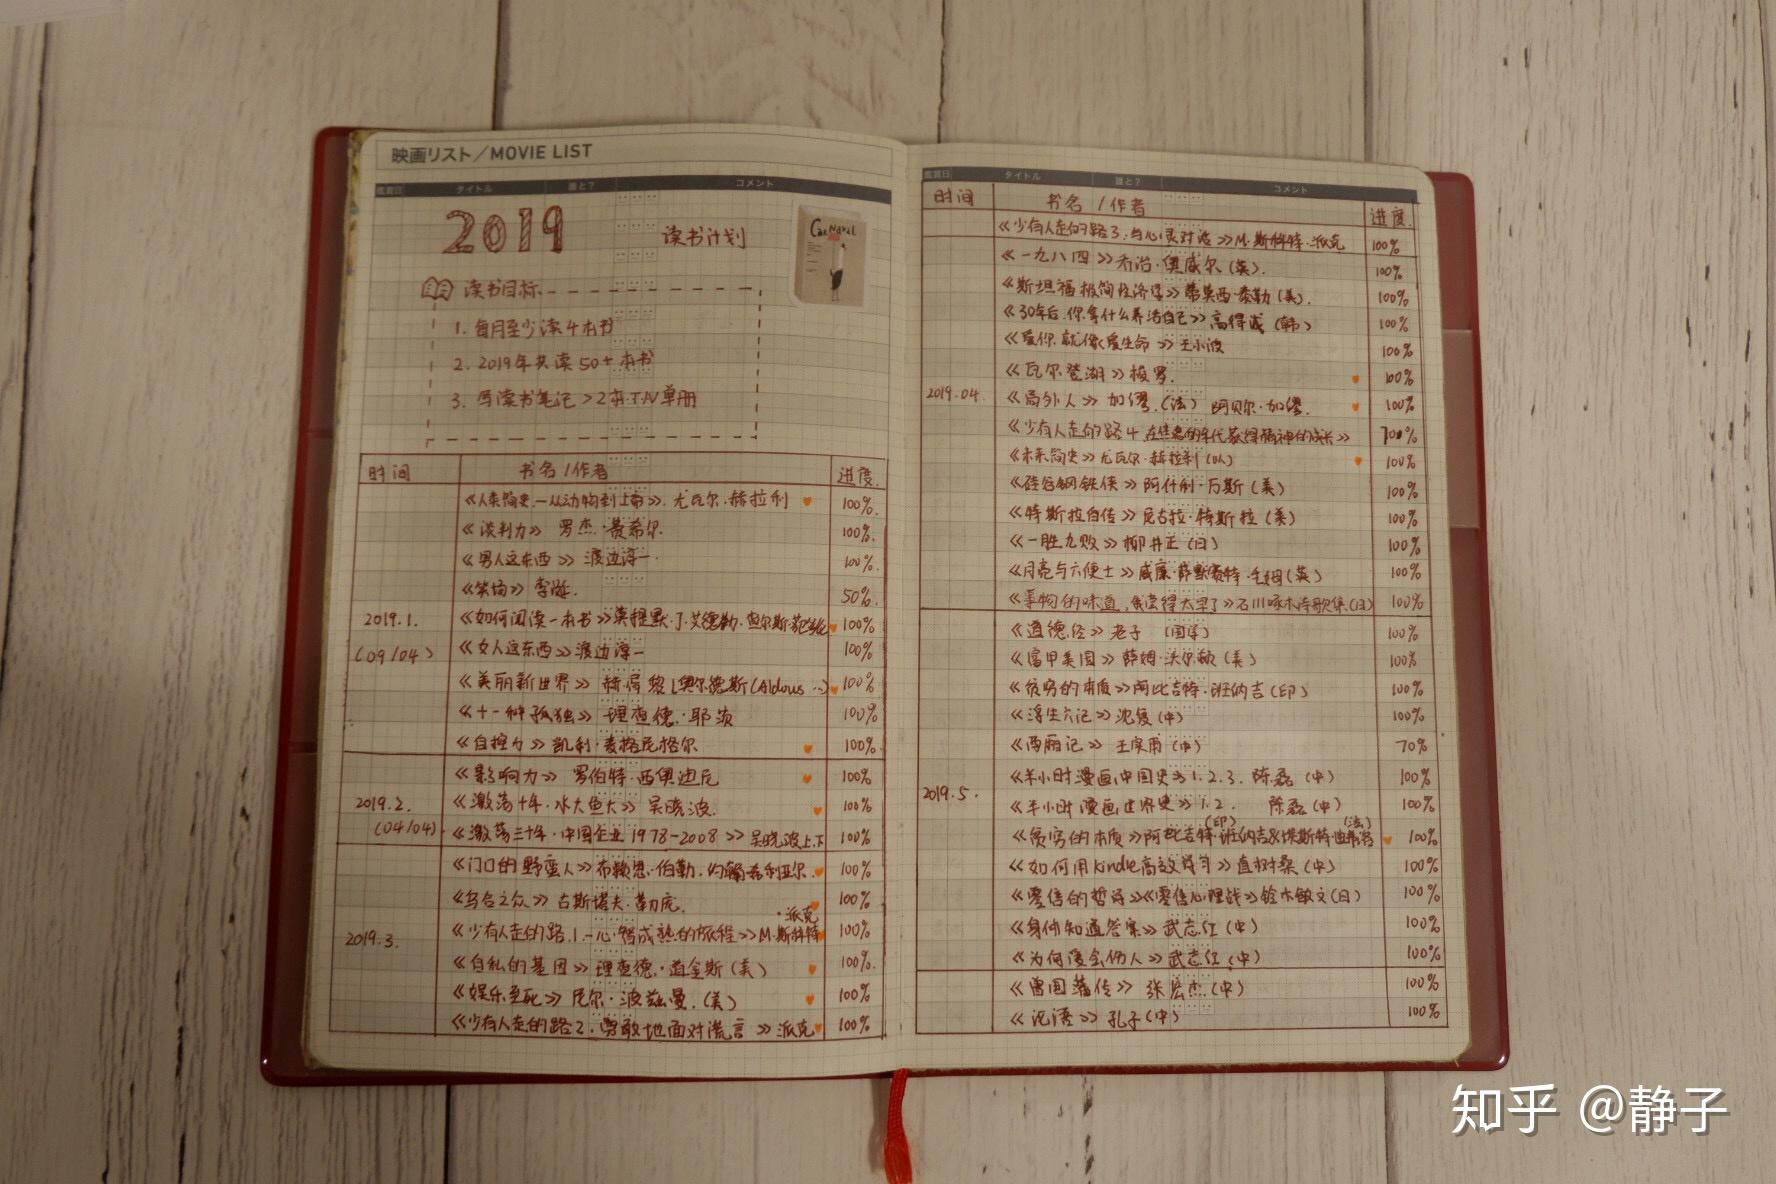 映画リスト／MOVIE LIST
鑑賞日 タイトル 誰と? コメント
2019 读书计划
CarNaval
读书目标
1. 每月至少读4本书
2. 2019年共读50+本书
3. 写读书笔记>2本.TN单册
时间 书名/作者 进度.
《人类简史—从动物到上帝》. 尤瓦尔·赫拉利 100%.
《谈判力》 罗杰·费希尔. 100%.
《男人这东西》 渡边淳一. 100%.
《笑场》 李诞. 50%.
2019.1. 《如何阅读一本书》莫提默·J.艾德勒.查尔斯 100%
(09/04) 《女人这东西》渡边淳一 100%
《美丽新世界》 赫胥黎[奥尔德斯(Aldous ··) 100%
《十一种孤独》 理查德.·耶茨 100%
《自控力》 凯利·麦格尼格尔 100%.
《影响力》 罗伯特·西奥迪尼 100%
2019.2. 《激荡十年·水大鱼大》 吴晓波. 100%
(04/04). 《激荡三十年·中国企业1978-2008》吴晓波上.下 100%
《门口的野蛮人》布赖恩·伯勒.约翰·希利亚尔. 100%
《乌合之众》古斯塔夫·勒庞. 100%
·派克
2019.3. 《少有人走的路.1.-心智成熟的旅程》M·斯科特 100%
《自私的基因》理查德.·道金斯(英) 100%.
《娱乐至死》尼尔·波兹曼.(美) 100%
《少有人走的路2.勇敢地面对谎言》派克 100%
鑑賞日 タイトル 誰と? コメント
时间 书名/作者 进度.
《少有人走的路3:与心灵对话》M·斯科特·派克 100%
《一九八四》乔治·奥威尔(英). 100%
《斯坦福极简经济学》蒂莫西·泰勒(美). 100%
《30年后,你拿什么养活自己》高得诚(韩) 100%
《爱你就像爱生命》王小波 100%
《瓦尔登湖》梭罗. 100%
2019.04. 《局外人》加缪.(法) 阿贝尔·加缪. 100%
《少有人走的路4 在焦虑的年代获得精神的成长》 100%
《未来简史》尤瓦尔·赫拉利(以) 100%
《硅谷钢铁侠》阿什利·万斯(美) 100%
《特斯拉自传》尼古拉·特斯拉(美) 100%
《一胜九败》柳井正(日) 100%
《月亮与六便士》威廉·萨默赛特·毛姆(英) 100%
《事物的味道,我尝得太早了》石川啄木诗歌集(日) 100%
《道德经》老子 (国学) 100%
《富甲美国》萨姆·沃尔顿(美) 100%
《贫穷的本质》阿比吉特·班纳吉(印) 100%
《浮生六记》沈复(中) 100%
《西厢记》王实甫(中) 70%
《半小时漫画中国史》1.2.3. 陈磊(中) 100%
2019.5. 《半小时漫画世界史》1.2. 陈磊(中) 100%
(印) (法)
《贫穷的本质》阿比吉特·班纳吉&埃斯特·迪弗洛 100%
《如何用kindle高效学习》直树桑(中) 100%
《零售的哲学》《零售心理战》铃木敏文(日) 100%
《身体知道答案》武志红(中) 100%
《为何爱会伤人》武志红(中) 100%
《曾国藩传》 张宏杰.(中) 100%
《论语》孔子(中) 100%
知乎 @静子